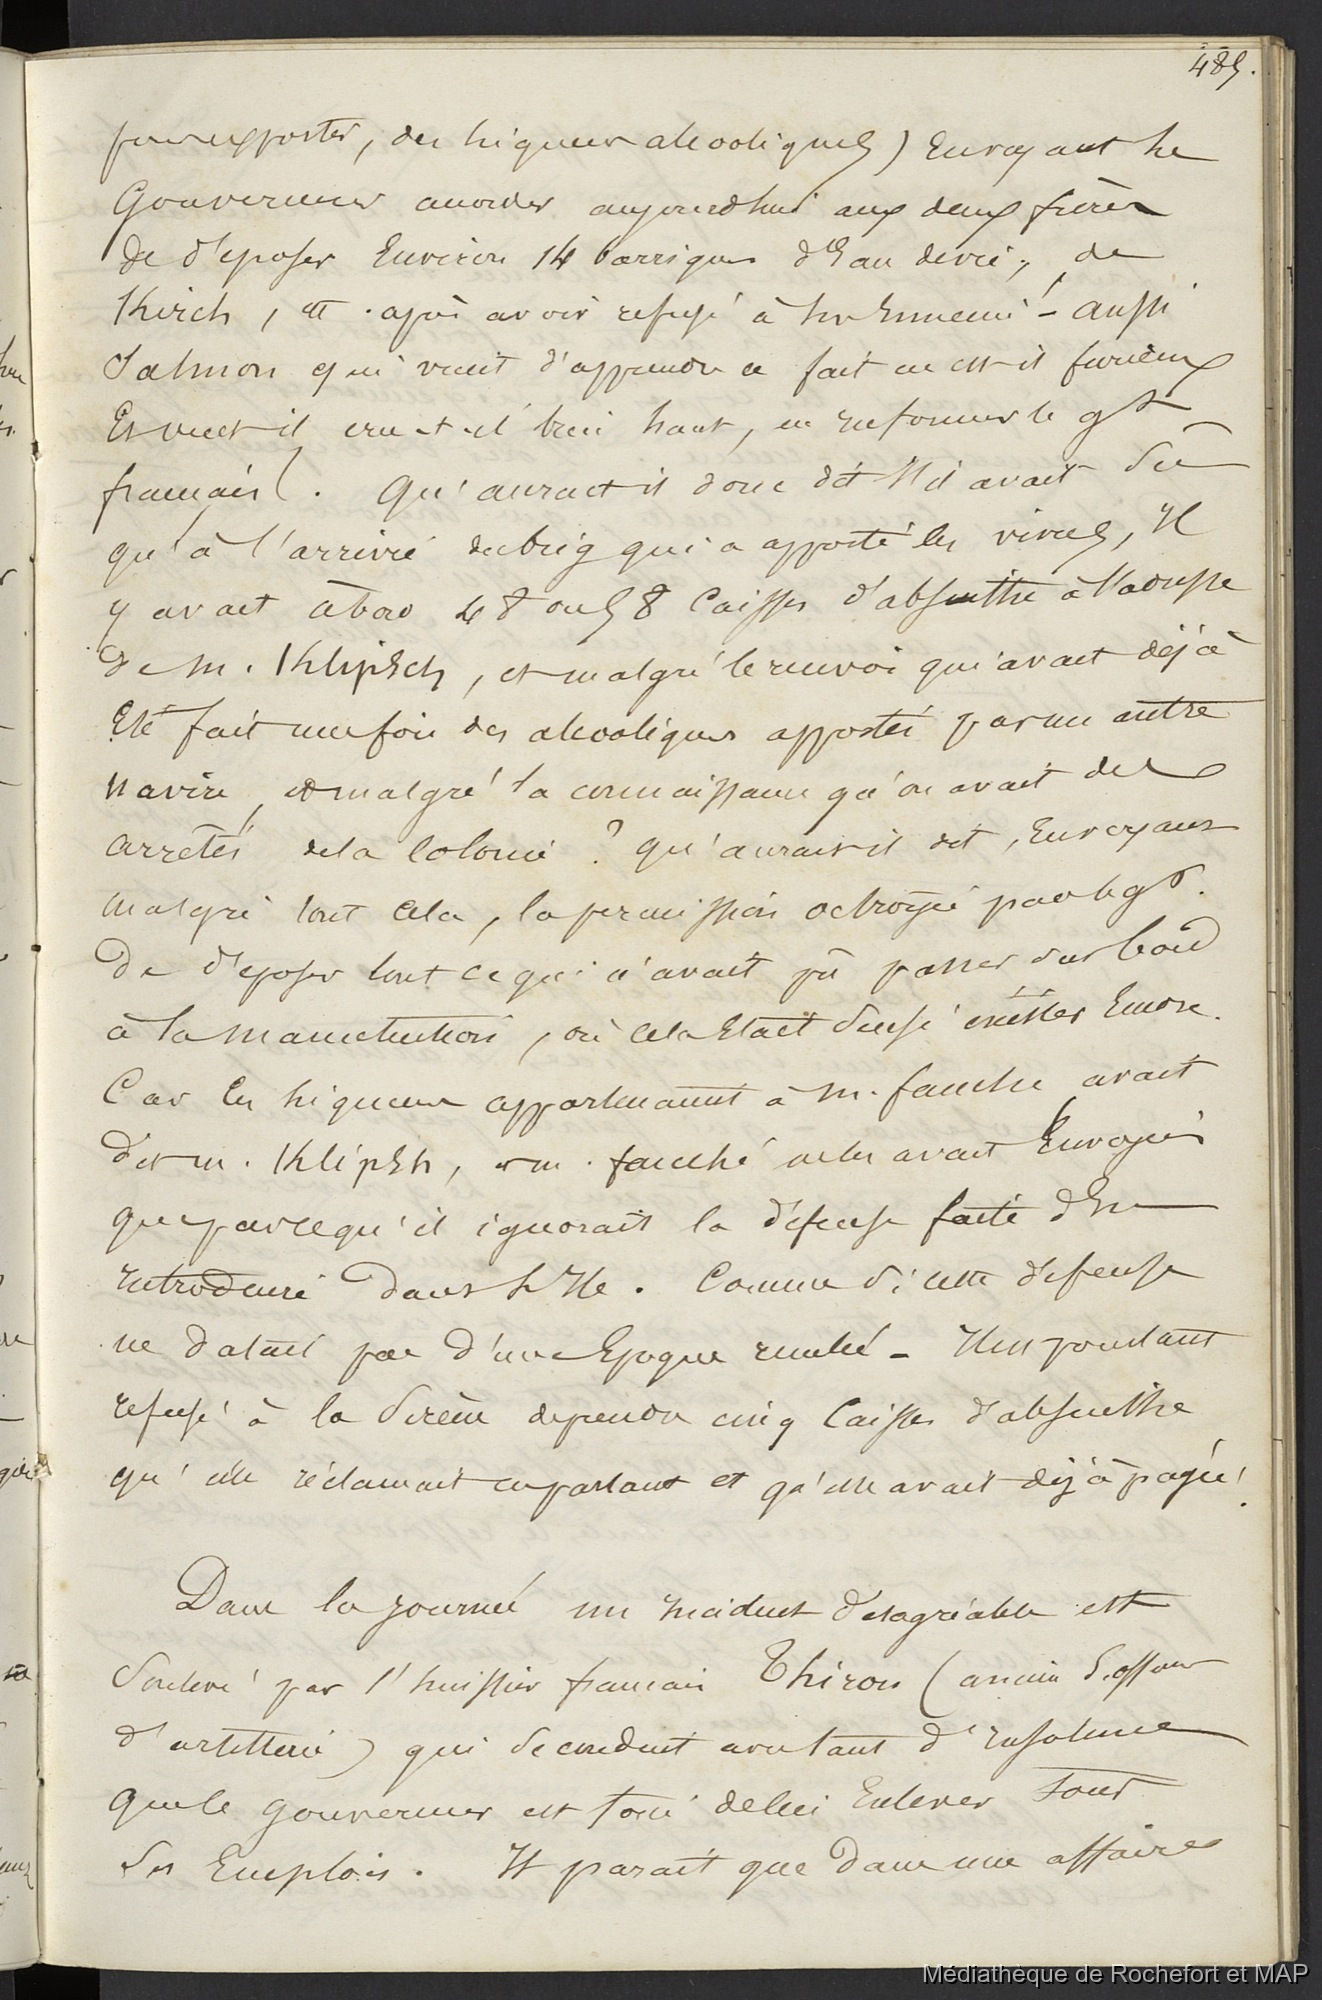 485.
pour exporter, des liqueurs alcooliques) En voyant le
Gouverneur accorder aujourdhui aux deux frères
de déposer Environ 14 barriques d'Eau de vie, de
Kirch, etc. après avoir refusé à leur Ennemi - aussi
Salmon qui vient d'apprendre ce fait en est-il furieux
Et veut-il crie-t-il bien haut, en informer le gt
français. Qu'aurait il donc dit s'il avait Su
qu'à l'arrivée du brig qui a apporté les vivres, Il
y avait à bord 48 ou 58 Caisses d'absinthe à l'adresse
de M. Klipsch, et malgré le renvoi qui avait déjà
Eté fait une fois des alcooliques apportés par un autre
navire, et malgré la connaissance qu'on avait des
arretés de la Colonie? Qu'aurait-il dit, En voyant
malgré tout cela, la permission octroyée par le gt.
de déposer tout ce qui n'avait pû passer sur bord
à la manutention, où cela Etait Sensé exister Encore.
Car les liqueurs appartenaient à M. fauché avait
dit m. Klipsh, et m. fauché ne les avait Envoyées
que parce qu'il ignorait la défense faite d'En
introduire dans l'Ile. Comme Si cette défense
ne datait pas d'une Epoque reculée - Il est pourtant
refusé à la Sirène de prendre cinq Caisses d'absinthe
qu'elle réclamait en partant et qu'elle avait déjà payée!
Dans la journée un incident désagréable est
Soulevé par l'huissier francais Thiron (ancien S. officier
d'artillerie) qui Se conduit avec tant d'insolence
que le Gouverneur est forcé de lui Enlever tous
Ses Emplois. Il parait que dans une affaire
Médiathèque de Rochefort et MAP